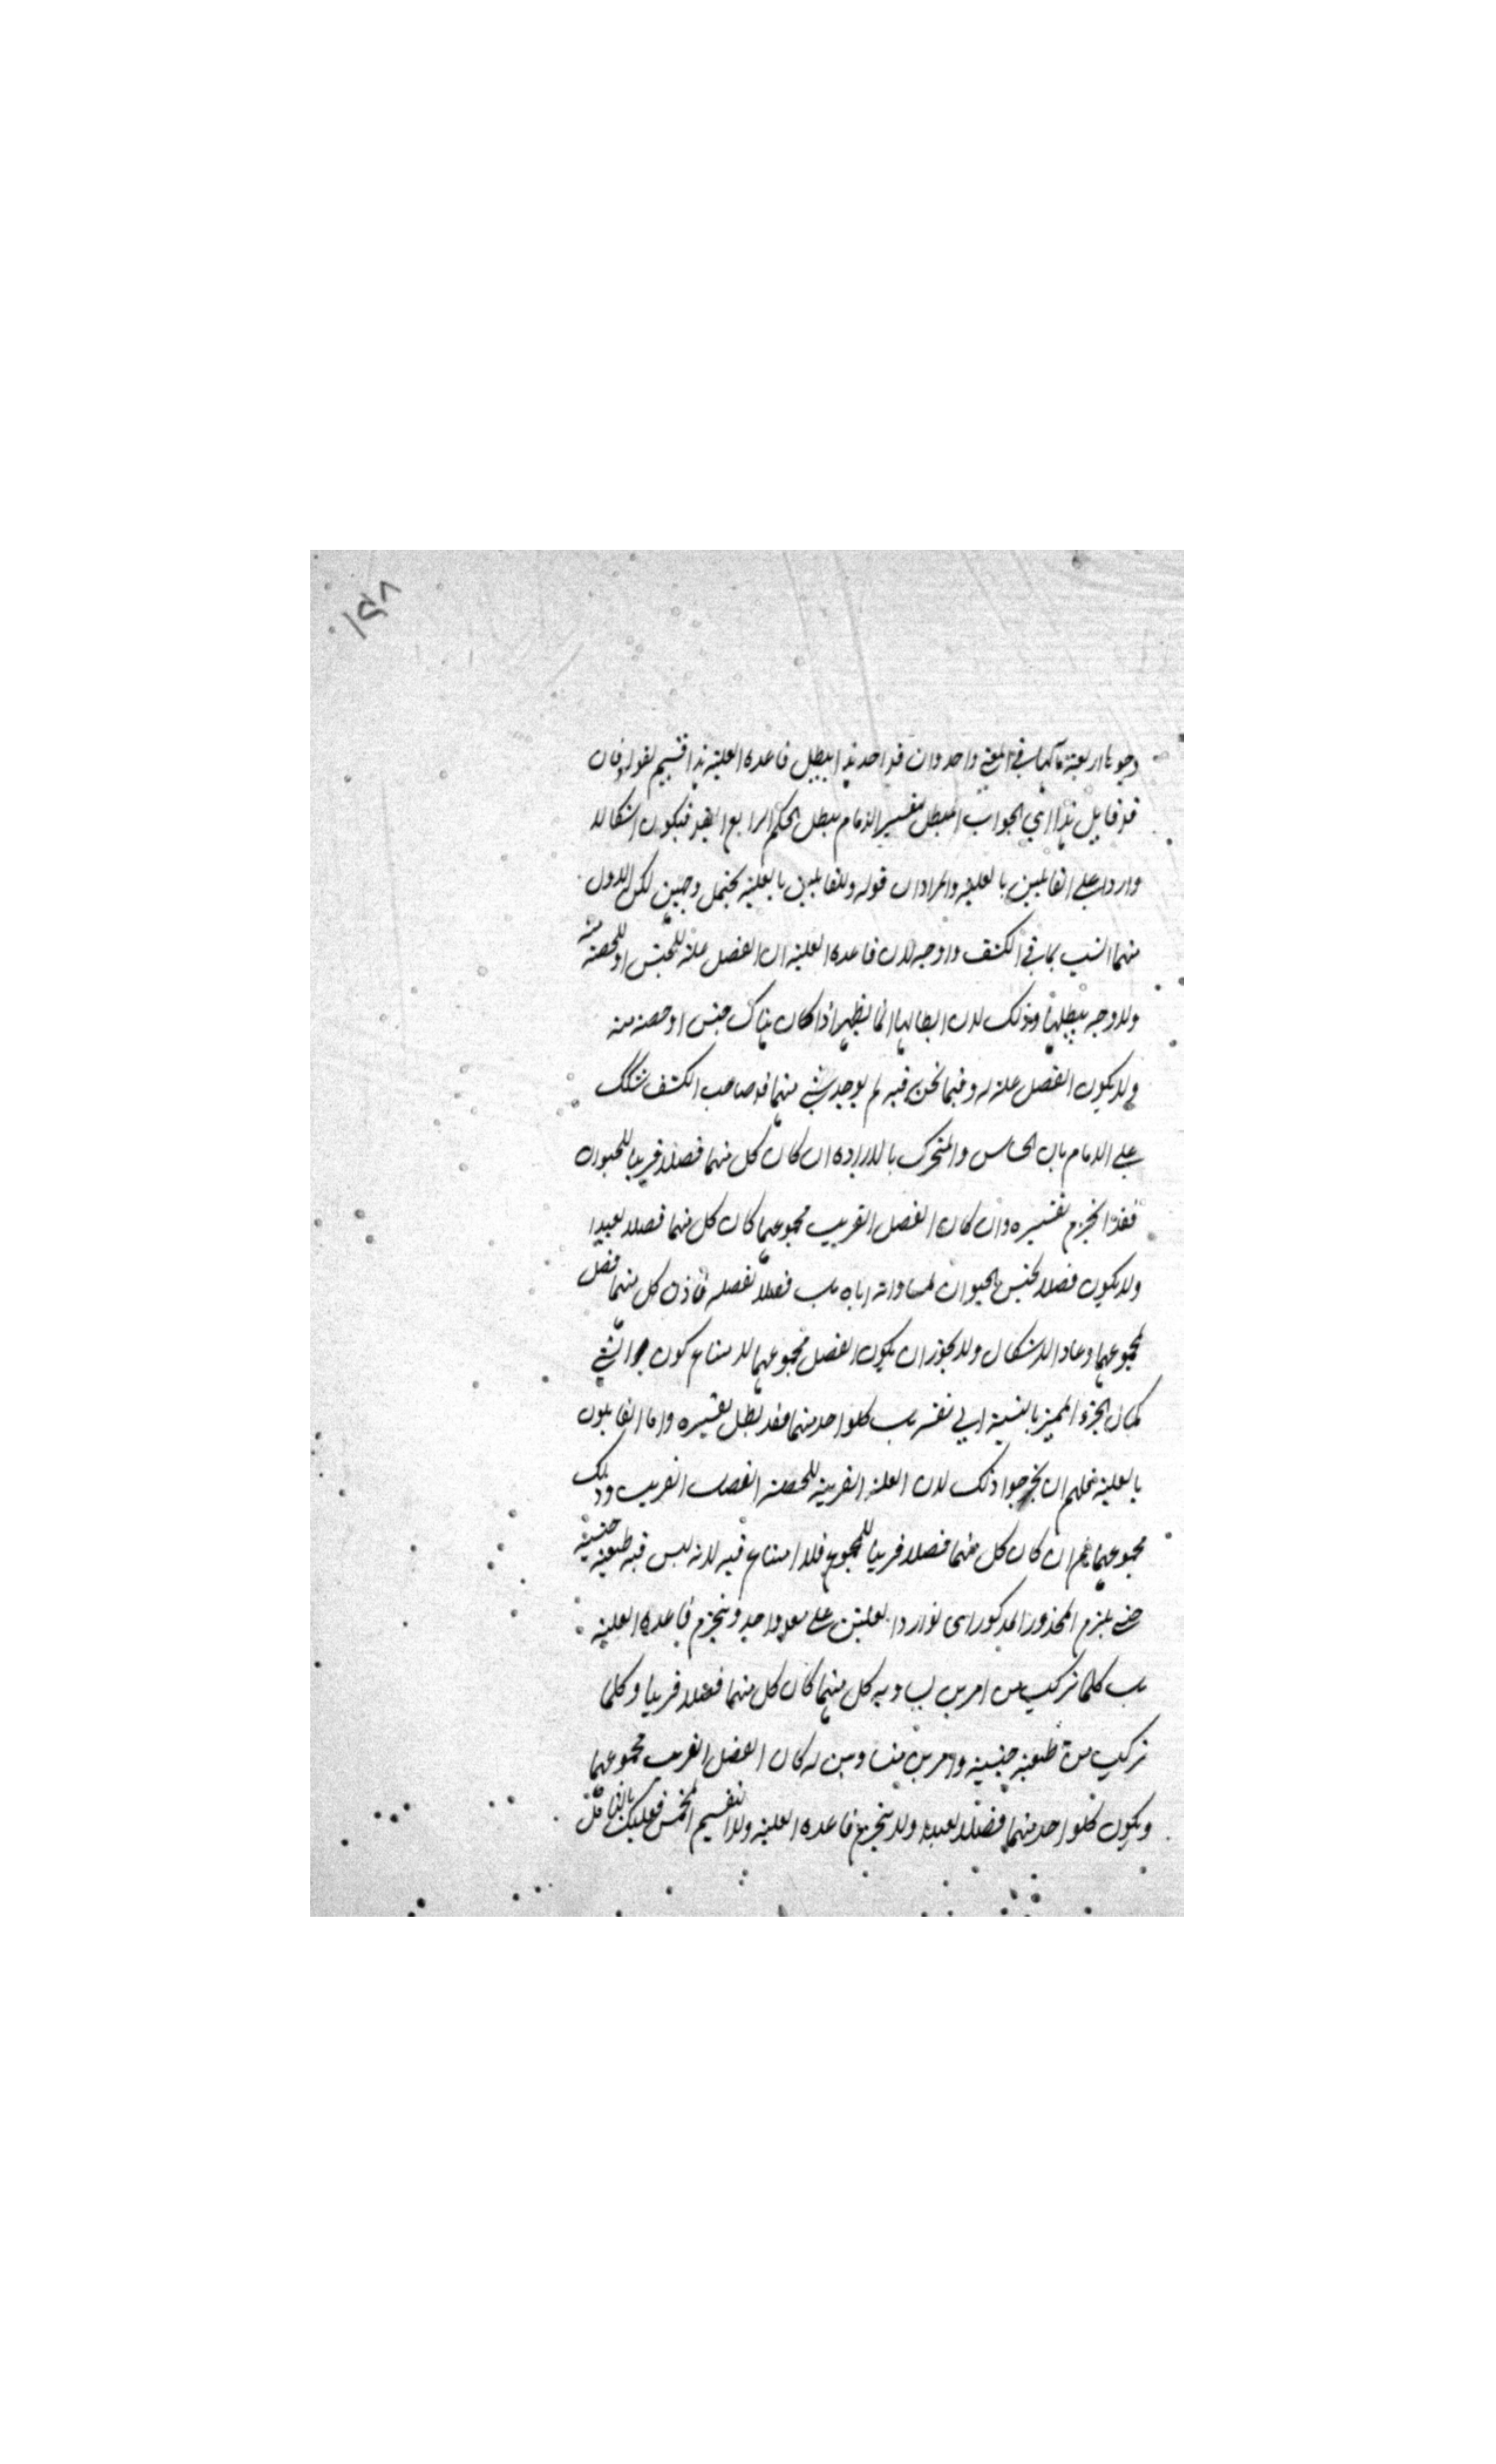 ١٥٨
وجوبا اربعة مآلها في المعنى واحد وان قد احد هذا يبطل قاعدة العلية هذا تقسيم لقوله فان
قد قايل هذا اي الجواب المبطل لتفسير الامام يبطل الحكم الرابع ايضا فيكون اشكالا
واردا على القايلين بالعلية والمراد ان قوله وللقايلين بالعلية يحتمل وجهين لكن الاول
منهما انسب بما في الكشف واوجه لان قاعدة العلية ان الفصل علة للجنس او للحصة منه
ولا وجه يبطلها وذلك لان ابطالها انما يظهر اذا كان هناك جنس او حصة منه
ولا يكون الفصل علة له وفيما نحن فيه لم يوجد شيء منهما صاحب الكشف شكك
على الامام بان الحساس والمتحرك بالارادة ان كان كل منهما فصلا قريبا للحيوان
فقد انخرم تفسيره وان كان الفصل القريب مجموعهما كان كل منهما فصلا بعيدا
ولا يكون فصلا لجنس الحيوان لمساواته اياه بل فصلا لفصله فاذن كل منهما فصل
لمجموعهما وعاد الاشكال ولا يجوز ان يكون الفصل مجموعهما لامتناع كون جزا الشيء
كمال الجزء المميز بالنسبة الى نفسه بل كلواحد منهما فقد بطل تفسيره واما القايلون
بالعلية فعليهم ان يخرجوا ذلك لان العلة القريبة للحصة الفصل القريب وذلك
مجموعهما نعم ان كان كل منهما فصلا قريبا للمجموع فلا امتناع فيه لانه ليس فيه طبيعة جنسية
حتى يلزم المحذور المذكور اي توارد العلتين على معلول واحد وينخرم قاعدة العلية
بل كلما تركب من امرين يساويه كل منهما كان كل منهما فصلا قريبا وكلما
تركب من طبيعة جنسية وامرين متساويين له كان الفصل القريب مجموعهما
ويكون كلواحد منهما فصلا بعيدا ولا ينخرم قاعدة العلية ولا التقسيم المخمس فعليك بالتامل